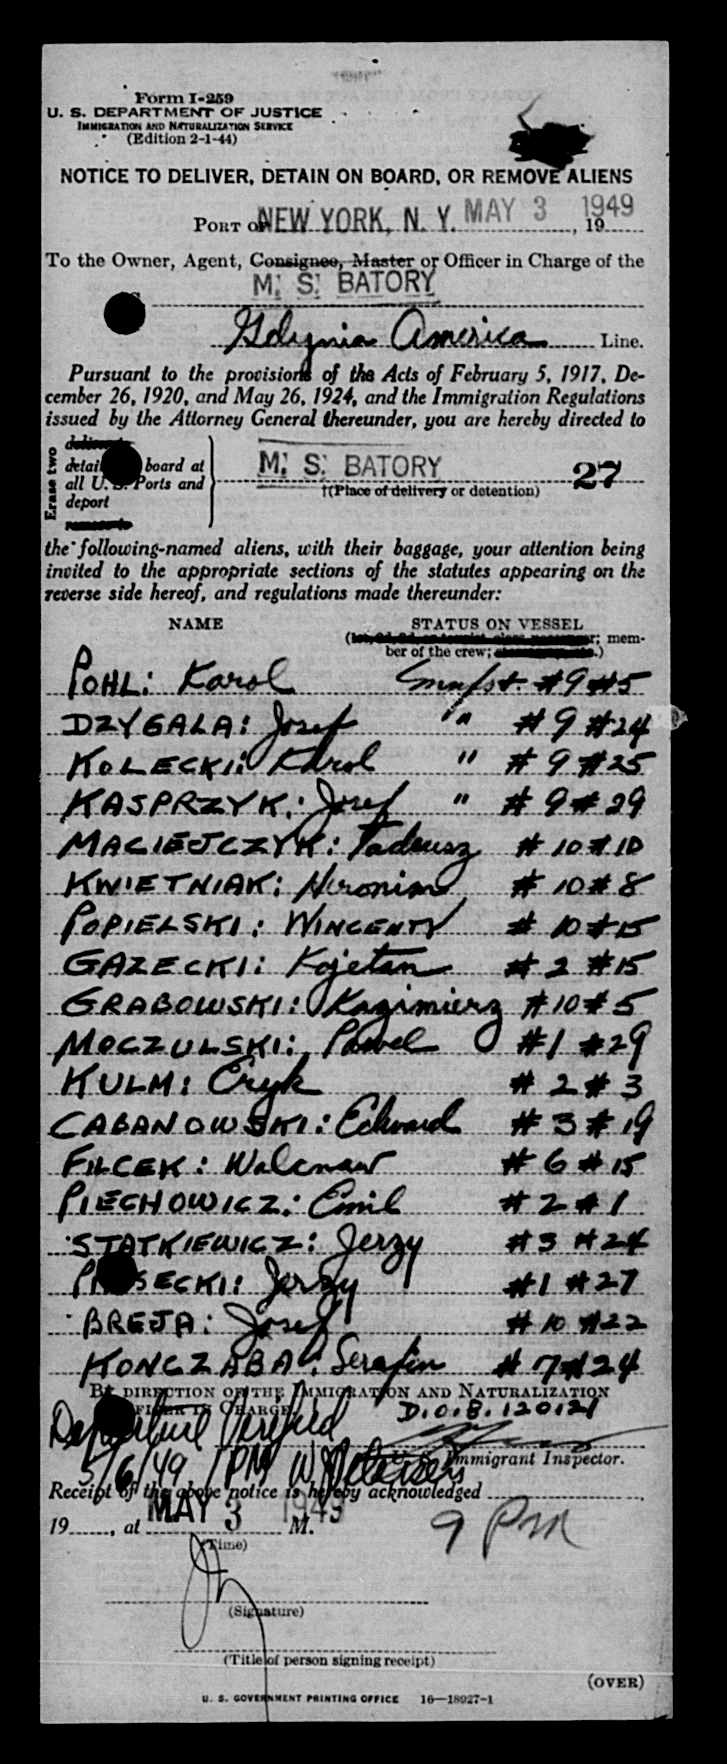 Form I-259
U. S. DEPARTMENT OF JUSTICE
IMMIGRATION AND NATURALIZATION SERVICE
(Edition 2-1-44)
NOTICE TO DELIVER, DETAIN ON BOARD, OR REMOVE ALIENS
PORT OF NEW YORK, N. Y. MAY 3 1949, 19
To the Owner, Agent, Consignee, Master or Officer in Charge of the
M. S. BATORY
Gdynia America Line.
Pursuant to the provisions of the Acts of February 5, 1917, De-
cember 26, 1920, and May 26, 1924, and the Immigration Regulations
issued by the Attorney General thereunder, you are hereby directed to
Erase two
deliver to
detain board at
all U. S. Ports and
deport
remove to
M. S. BATORY 27
†(Place of delivery or detention)
the following-named aliens, with their baggage, your attention being
invited to the appropriate sections of the statutes appearing on the
reverse side hereof, and regulations made thereunder:
NAME STATUS ON VESSEL
mem-
ber of the crew; .)
POHL: Karol #9 #5
DZYGALA: Josef " #9 #24
KOLECKI: Karol " #9 #25
KASPRZYK: Josef " #9 #29
MACIEJCZYK: Tadeusz #10 #10
KWIETNIAK: Hieronim #10 #8
POPIELSKI: WINCENTY #10 #15
GAZECKI: Kajetan #2 #15
GRABOWSKI: Kazimierz #10 #5
MOCZULSKI: Pawel #1 #29
KULM: Eryk #2 #3
CABANOWSKI: Edward #3 #19
FILCEK: #6 #15
PIECHOWICZ: Emil #2 #1
STATKIEWICZ: Jerzy #3 #24
Jerzy #1 #27
BREJA: Josef #10 #22
KONCZABA: Serafin #7 #24
BY DIRECTION OF THE IMMIGRATION AND NATURALIZATION
OFFICER IN CHARGE, D.O.B. 12012/
Departure Verified
5/6/49 1 PM Immigrant Inspector.
Receipt of the above notice is hereby acknowledged
19, at MAY 3 1949 M. 9 PM
(Time)
(Signature)
(Title of person signing receipt)
(OVER)
U. S. GOVERNMENT PRINTING OFFICE 16—18027-1